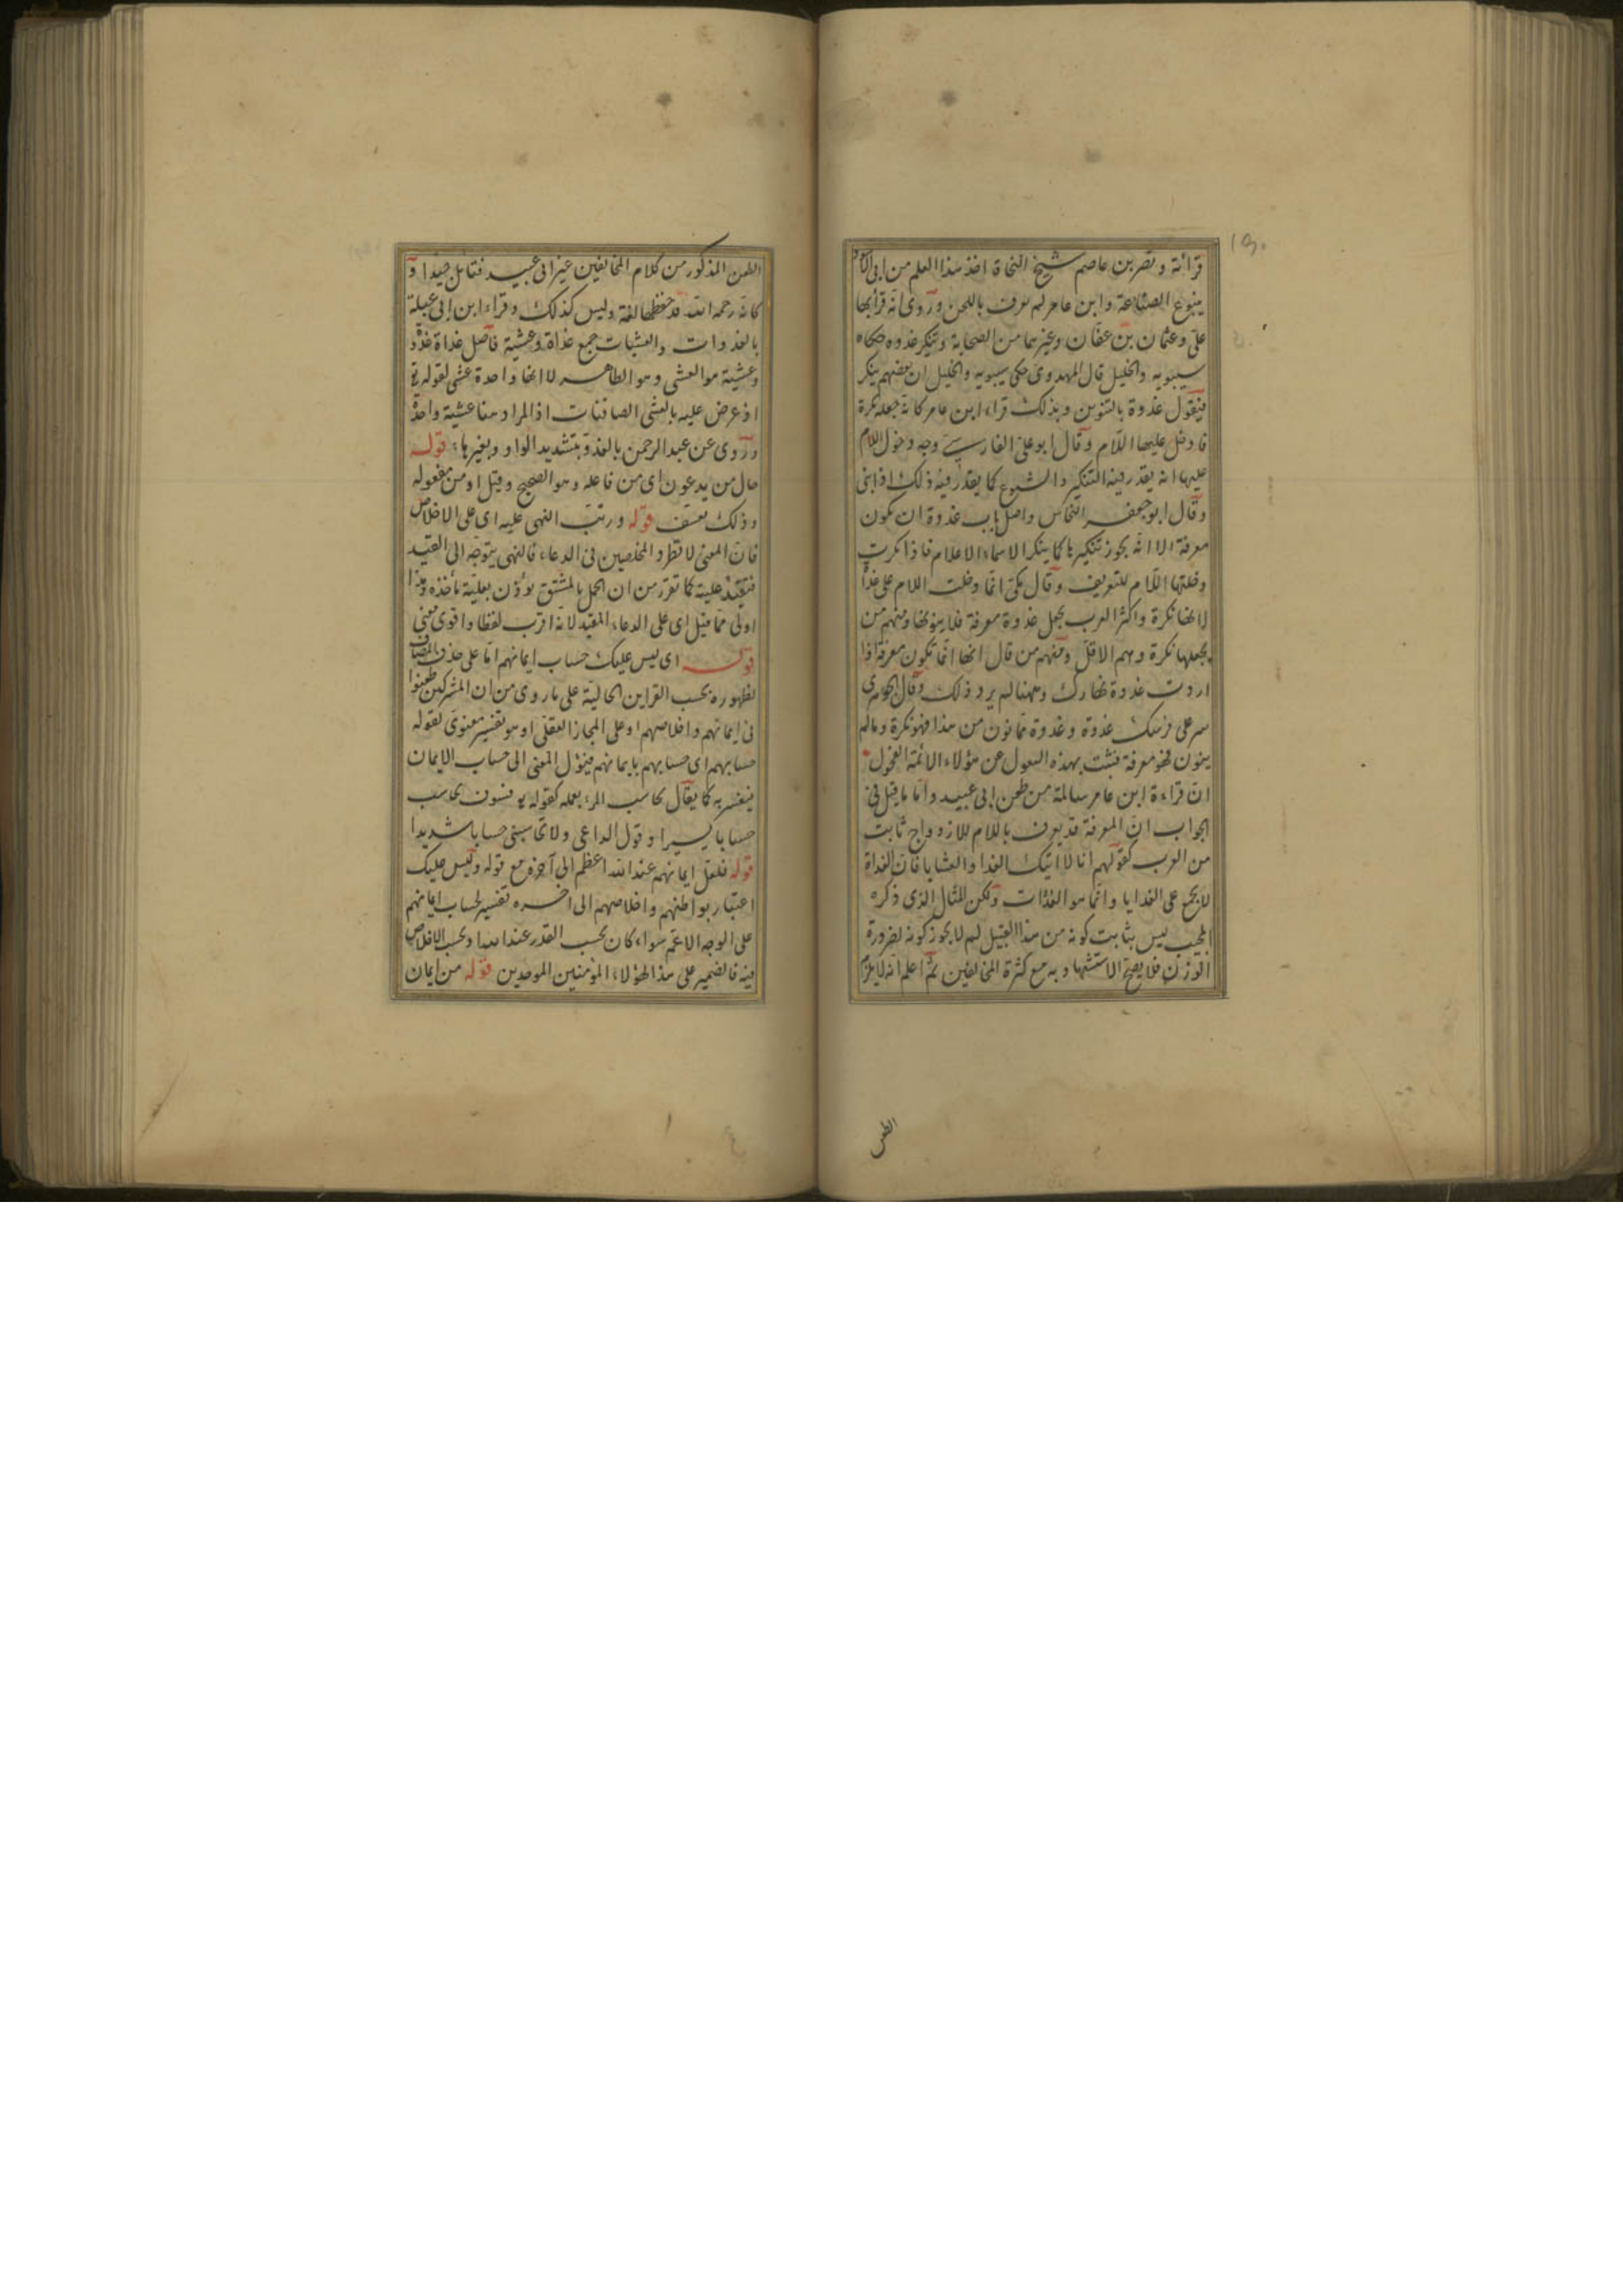 ١٩٠
قرائة ونصر بن عاصم شيخ النحاة اخذ هذا العلم من ابى الاسود
ينبوع الصناعة وابن عامر لم يعرف باللحن وروى انه قرأ بها
على وعثمان بن عفان وغيرهما من الصحابة وتنكير غدوة حكاه
سيبويه والخليل قال المهدوى حكى سيبويه والخليل ان بعضهم ينكر
فيقول غدوة بالتنوين وبذلك قراء ابن عامر كانه جعله نكرة
فادخل عليها اللام وقال ابو على الفارسى وجه دخول اللام
عليها انه يقدر فيه التنكير والشيوع كما يقدر فيه ذلك اذا ثنى
وقال ابو جعفر النحاس واصل باب غدوة ان يكون
معرفة الا انه يجوز تنكيرها كما ينكر الاسماء الاعلام فاذا نكرت
دخلتها اللام للتعريف وقال مكى انما دخلت اللام على غداة
لانها نكرة واكثر العرب يجعل غدوة معرفة فلا ينونها ومنهم من
يجعلها نكرة وهم الاقل ومنهم من قال انها انما تكون معرفة اذا
اردت غدوة نهارك وههنا لم يرد ذلك وقال الجوهرى
سر على فرسك غدوة وغدوة فما نون من هذا فهو نكرة وما لم
ينون فهو معرفة فثبت بهذه النقول عن هؤلاء الائمة الفحول
ان قراءة ابن عامر سالمة من طعن ابى عبيد واما ما قيل فى
الجواب ان المعرفة قد يعرف باللام للازدواج ثابت
من العرب كقولهم انا لا اتيك الغدا والعشايا فان الغداة
لا يجمع على الغدايا وانما هو الغدات ولكن للمثال الذى ذكره
المجيب ليس بثابت كونه من هذا القبيل لم لا يجوز كونه لضرورة
الوزن فلا يصح الاستشهاد به مع كثرة المخالفين ثم اعلم انه لا يلزم
الطعن
الطعن المذكور من كلام المخالفين غير ابى عبيد فتامل جيدا و
كانه رحمه الله قد حفظها لغة وليس كذلك وقراء ابن ابى عبلة
بالغدوات والعشيات جمع غداة وعشية فاصل غداة غدوة
وعشية هو العشى وهو الظاهر لا انها واحدة عشى لقوله تع
اذ عرض عليه بالعشى الصافنات اذ المراد هنا عشية واحدة
وروى عن عبد الرحمن بالغدو بتشديد الواو وبغيرها قوله
حال من يدعون اى من فاعله وهو الصحيح وقيل او من مفعوله
وذلك تعسف قوله ورتب النهى عليه اى على الاخلاص
فان المعنى لا تطرد المخلصين فى الدعاء فالنهى يتوجه الى القيد
عليته كما تقرر من ان الحمل بالمشتق يؤذن بعلية مأخذه وهذا
اولى مما قيل اى على الدعاء المقيد لانه اقرب لفظا واقوى معنى
قوله اى ليس عليك حساب ايمانهم اما على حذف المضاف
لظهوره بحسب القراين الحالية على ما روى من ان المشركين طعنوا
فى ايمانهم واخلاصهم او على المجاز العقلى او هو تفسير معنوى لقوله
حسابهم اى حسابهم بايمانهم فيؤل المعنى الى حساب الايمان
به كما يقال يحاسب المرء بعمله كقوله تع فسوف يحاسب
حسابا يسيرا وقول الداعى ولا تحاسبنى حسابا شديدا
قوله فلعل ايمانهم عند الله اعظم الى آخره مع قوله وليس عليك
اعتبار بواطنهم واخلاصهم الى اخره تفسير لحساب ايمانهم
على الوجه الاعم سواء كان بحسب القدر عند الله او بحسب الاخلاص
فيه فالضمير على هذا لهؤلاء المؤمنين الموحدين قوله من ايمان